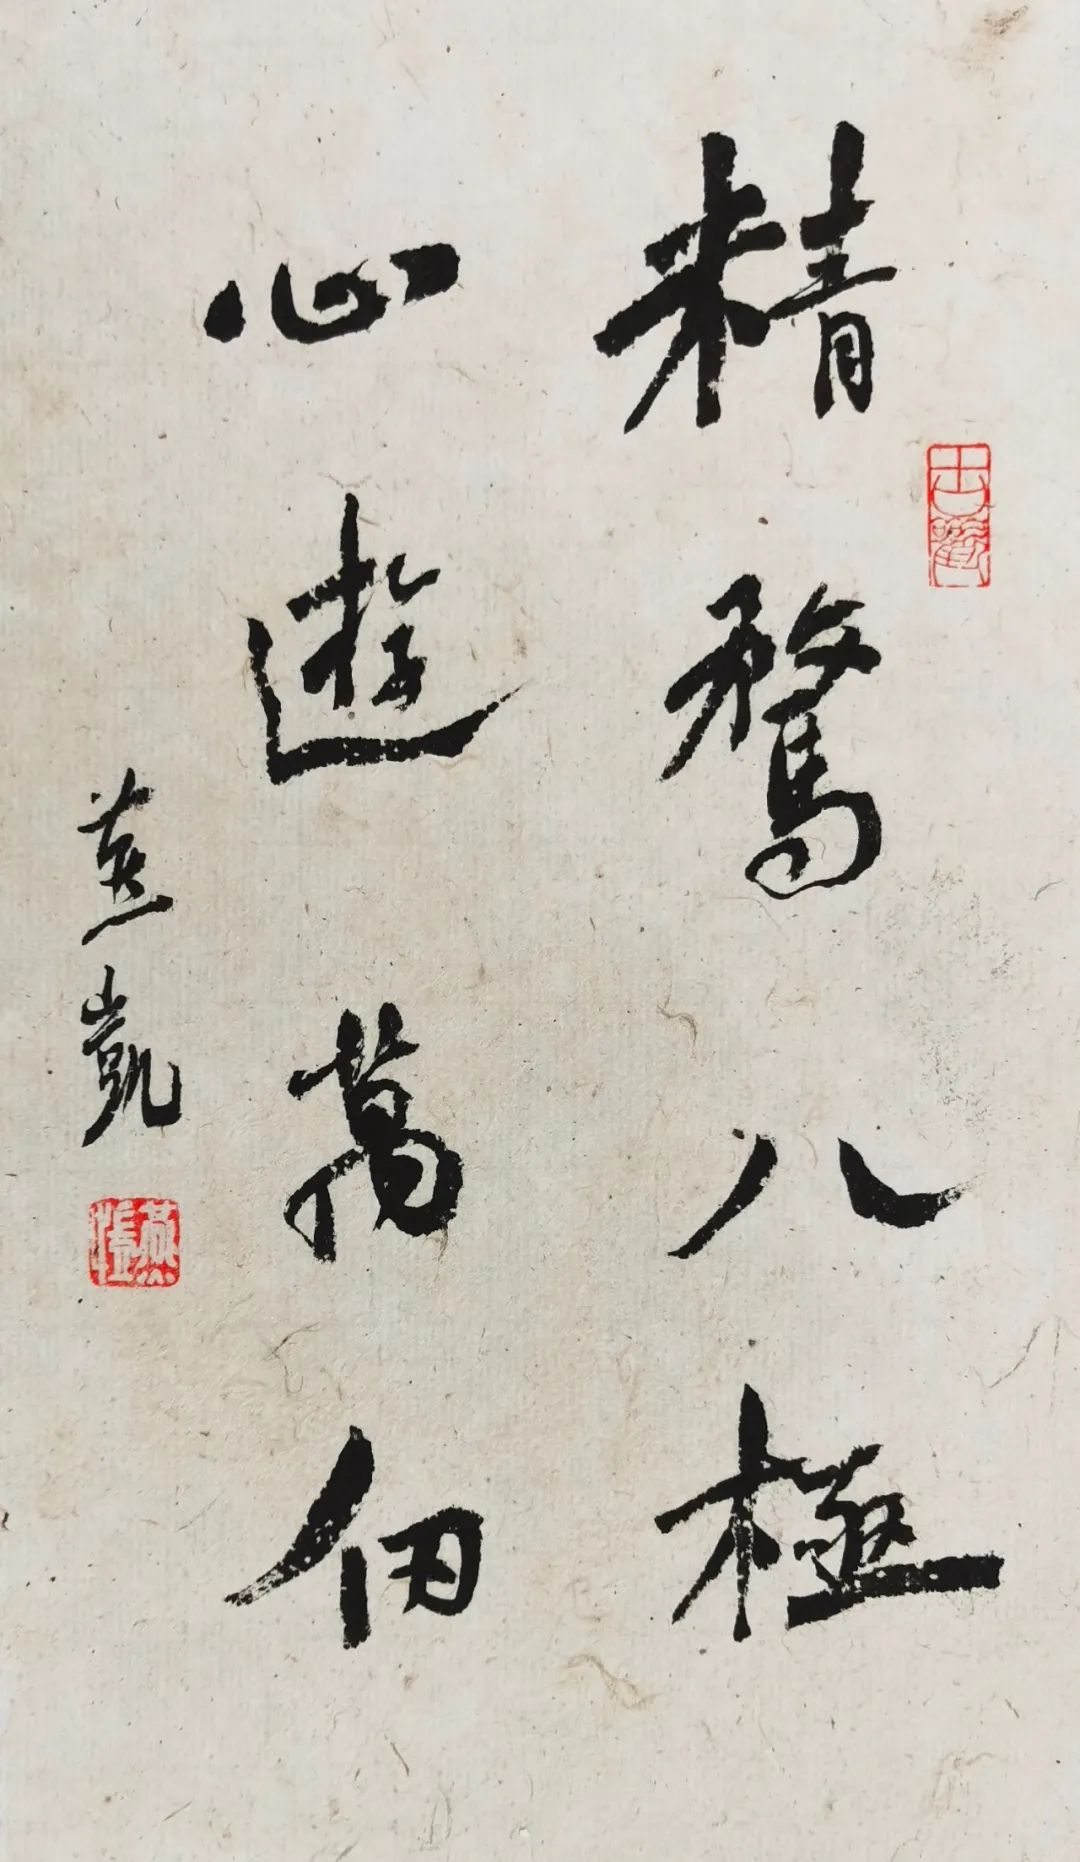 精騖八極
心遊萬仞
燕凱